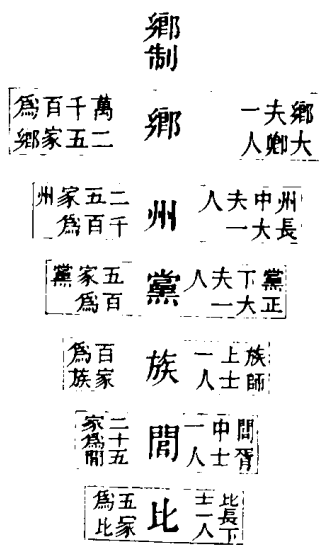 鄉制
鄉大
夫卿
一人
鄉
萬二
千五
百家
爲鄉
州長
中大
夫一
人
州
二千
五百
家爲
州
黨正
下大
夫一
人
黨
五百
家爲
黨
族師
上士
一人
族
百家
爲族
閭胥
中士
一人
閭
二十五
家爲閭
比長下
士一人
比
五家
爲比